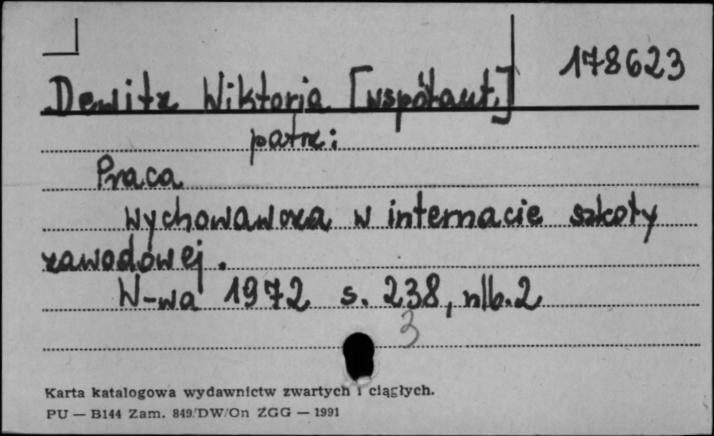 178623
Dewitz Wiktoria [współaut.]
patrz:
Praca
wychowawcza w internacie szkoły
zawodowej.
W-wa 1972 s. 238, nlb. 2
3
Karta katalogowa wydawnictw zwartych i ciągłych.
PU — B144 Zam. 849/DW/On ZGG — 1991